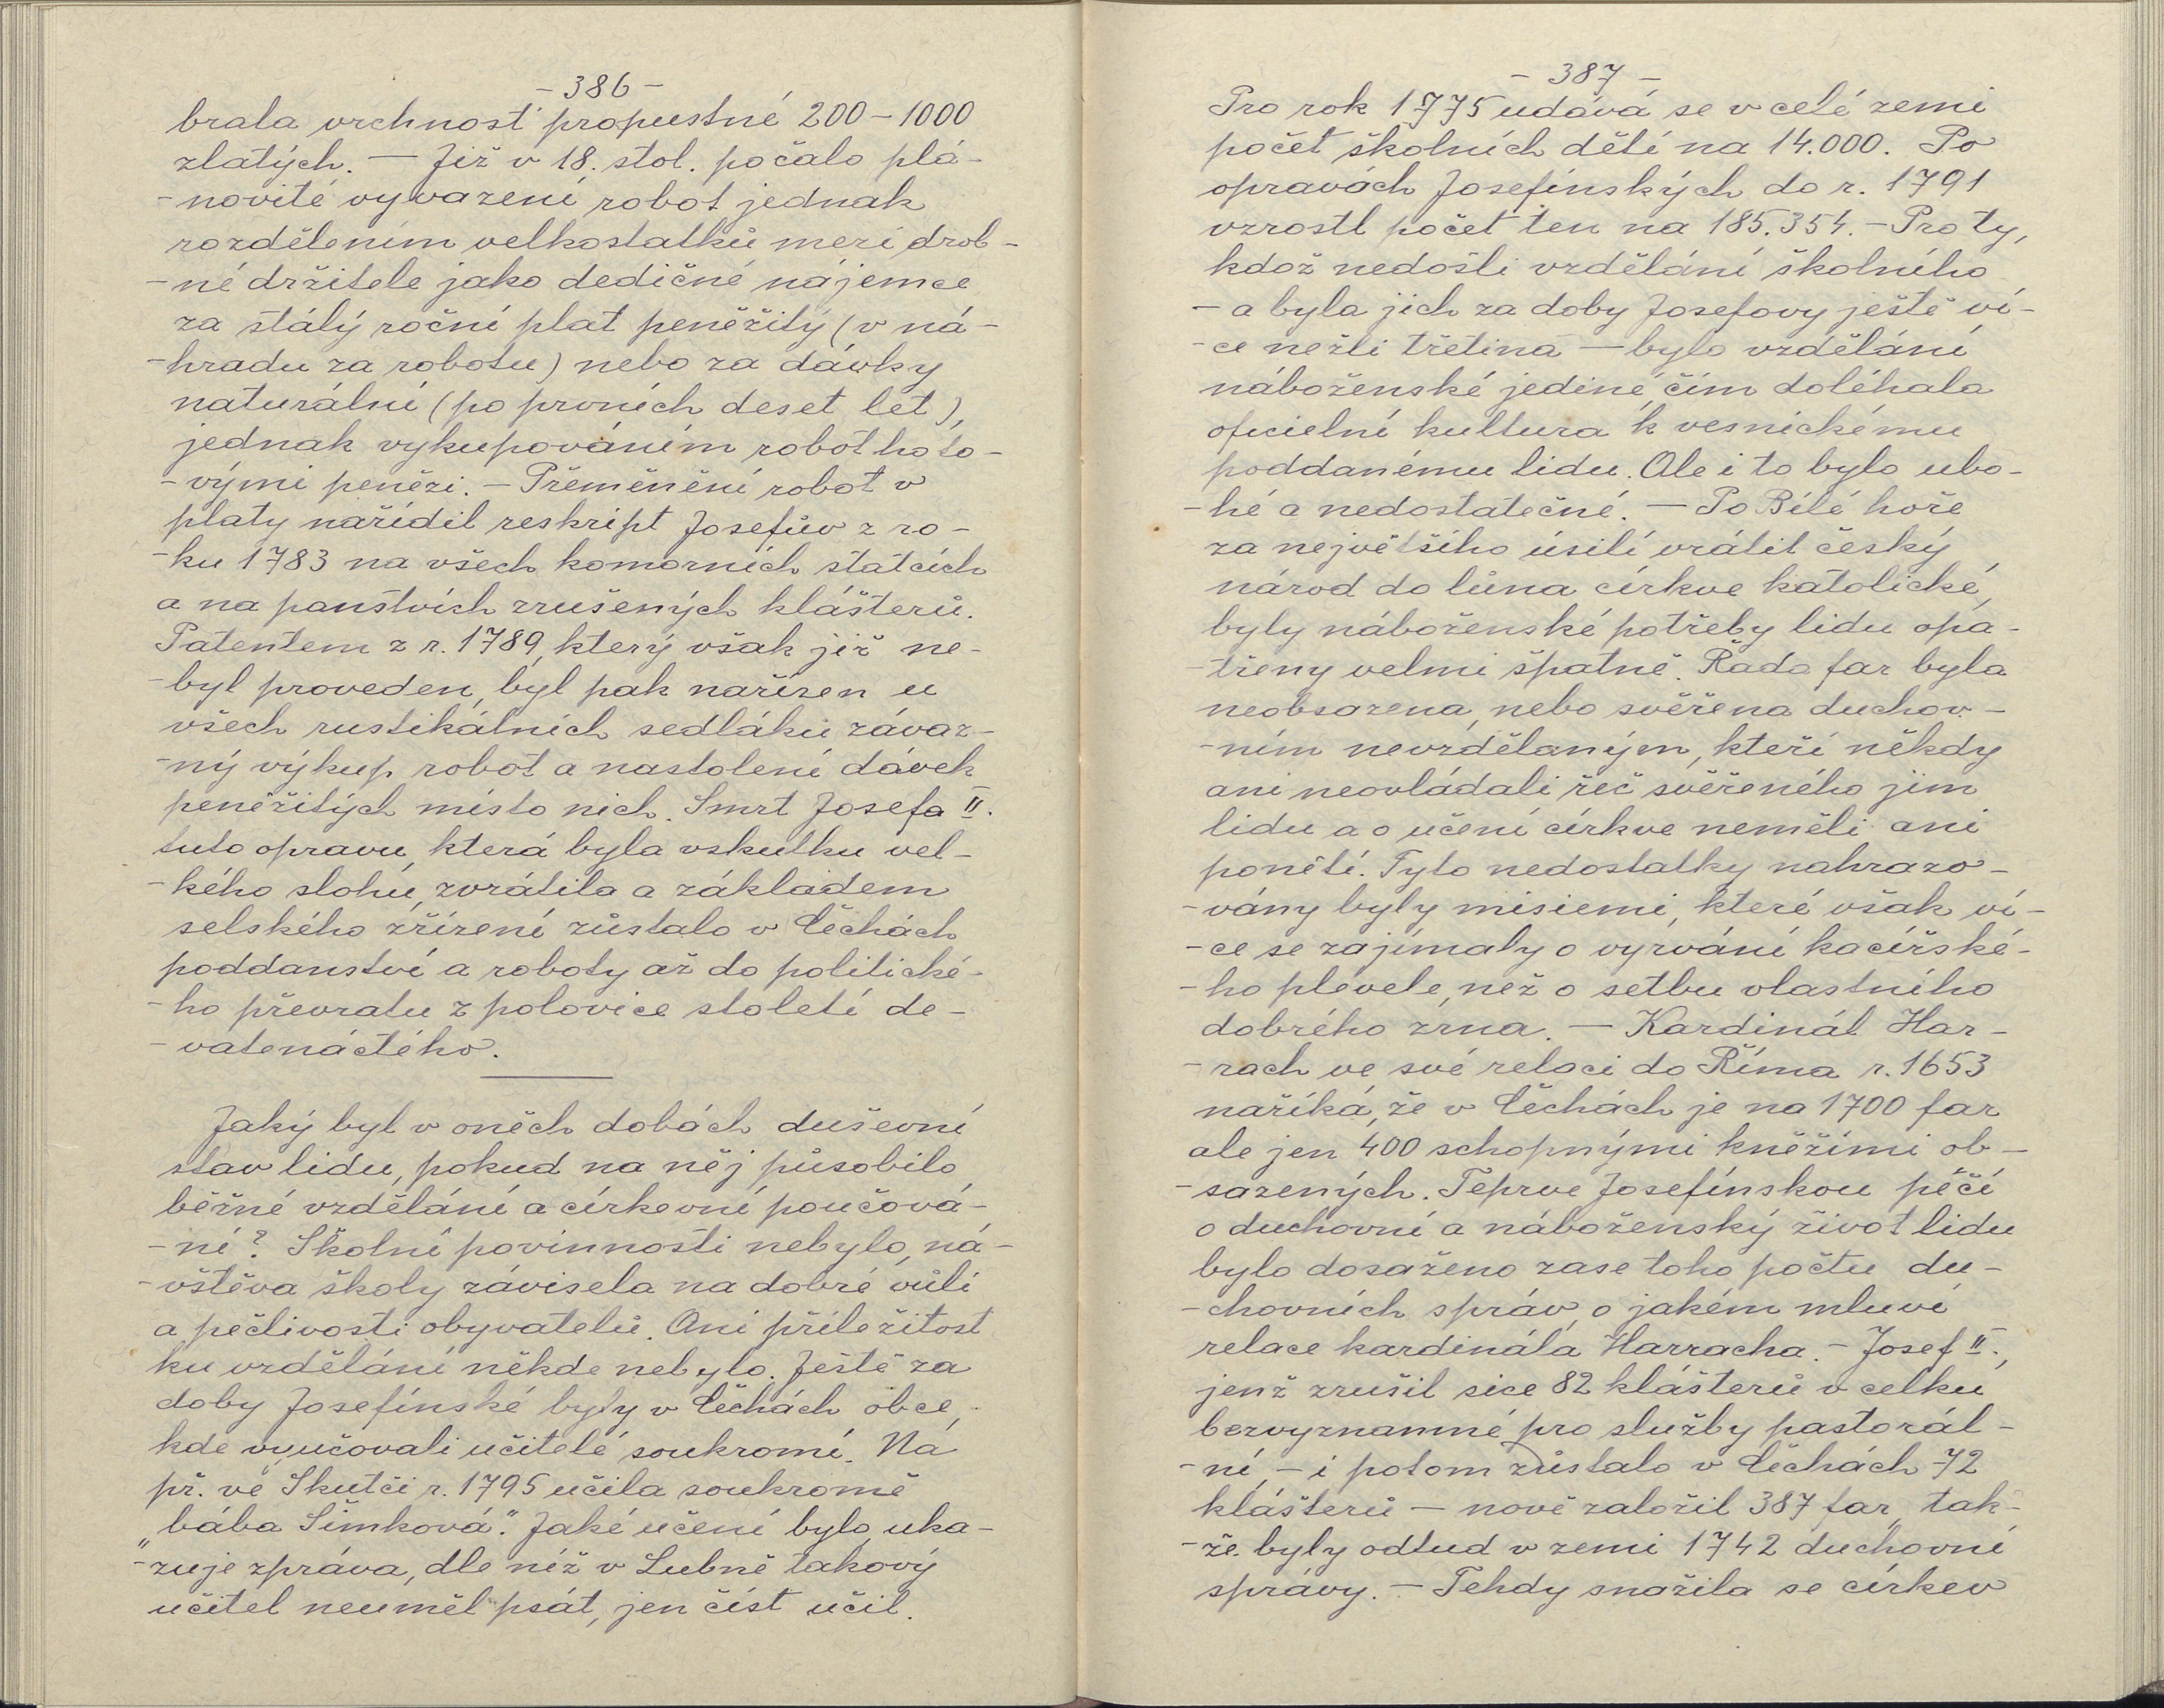 - 386 -
brala vrchnost propustné 200 - 1000
zlatých. — Již v 18. stol. počalo plá-
- novité vyvazení robot jednak
rozdělením velkostatků mezi drob-
- né držitele jako dedičné nájemce
za stálý roční plat peněžitý (v ná-
- hradu za robotu) nebo za dávky
naturální (po prvních deset let),
jednak vykupováním robot hoto-
- vými penězi. - Přeměnění robot v
platy nařídil reskript Josefův z ro-
- ku 1783 na všech komorních statcích
a na panstvích zrušených klášterů.
Patentem z r. 1789, který však již ne-
- byl proveden, byl pak nařízen u
všech rustikálních sedláků závaz-
- ný výkup robot a nastolení dávek
peněžitých místo nich. Smrt Josefa II.
tuto opravu, která byla vskutku vel-
- kého slohu, zvrátila a základem
selského zřízení zůstalo v Čechách
poddanství a roboty až do politické-
- ho převratu z polovice století de-
- vatenáctého.
Jaký byl v oněch dobách duševní
stav lidu, pokud na něj působilo
běžné vzdělání a církevní poučová-
- ní? Školní povinnosti nebylo, ná-
- vštěva školy závisela na dobré vůli
a pečlivosti obyvatelů. Ani příležitost
ku vzdělání někde nebylo. Ještě za
doby Josefínské byly v Čechách obce,
kde vyučovali učitelé soukromí. Na
př. ve Skutči r. 1795 učila soukromě
„bába Šimková." Jaké učení bylo, uka-
- zuje zpráva, dle níž v Lubně takový
učitel neuměl psát, jen číst učil.
- 387 -
Pro rok 1775 udává se v celé zemi
počet školních dětí na 14.000. Po
opravách Josefínských do r. 1791
vzrostl počet ten na 185.354. - Pro ty,
kdož nedošli vzdělání školního
- a byla jich za doby Josefovy ještě ví-
- ce nežli třetina — bylo vzdělání
náboženské jediné, čím doléhala
oficielní kultura k vesnickému
poddanému lidu. Ale i to bylo ubo-
- hé a nedostatečné. — Po Bílé hoře
za největšího úsilí vrátit český
národ do lůna církve katolické,
byly náboženské potřeby lidu opa-
- třeny velmi špatně. Řada far byla
neobsazena, nebo svěřena duchov-
- ním nevzdělaným, kteří někdy
ani neovládali řeč svěřeného jim
lidu a o učení církve neměli ani
ponětí. Tyto nedostatky nahrazo-
- vány byly misiemi, které však ví-
- ce se zajímaly o vyrvání kacířské-
- ho plevele, než o setbu vlastního
dobrého zrna. — Kardinál Har-
- rach ve své relaci do Říma r. 1653
naříká, že v Čechách je na 1700 far
ale jen 400 schopnými kněžími ob-
- sazených. Teprve Josefínskou péčí
o duchovní a náboženský život lidu
bylo dosaženo zase toho počtu du-
- chovních správ, o jakém mluví
relace kardinála Harracha. - Josef II.,
jenž zrušil sice 82 klášterů v celku
bezvyznamné pro služby pastorál-
- ní, - i potom zůstalo v Čechách 72
klášterů — nově založil 387 far, tak-
- že byly odtud v zemi 1742 duchovní
správy. - Tehdy snažila se církev